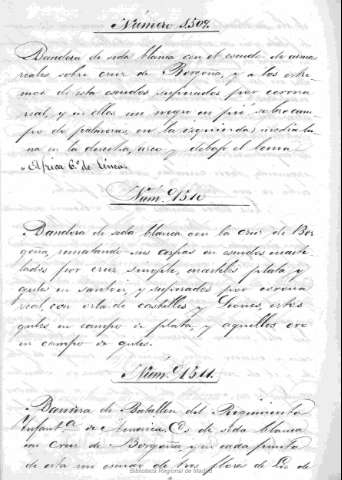 Número 1509.
Bandera de seda blanca con el escudo de armas
reales sobre cruz de Borgoña, y a los extre-
mos de esta escudos superados por corona
real, y en ellos un negro en pié sobre cam-
po de palmeras en la izquierda media lu-
na en la derecha, arco y debajo el lema
"Africa 6º de línea.
Núm. 1510
Bandera de seda blanca con la cruz de Bor-
goña, rematando sus aspas en escudos cuarte-
lados por cruz simple, cuarteles plata y
gules en santor, y superados por corona
real, con orla de castillos y Leones, estos
gules en campo de plata, y aquellos oro
en campo de gules.
Núm. 1511.
Bandera de Batallon del Regimiento
Infantª de America. Es de seda blanca
con Cruz de Borgoña y en cada punta
de esta un escudo de tres flores de Lis de
Biblioteca Regional de Madrid